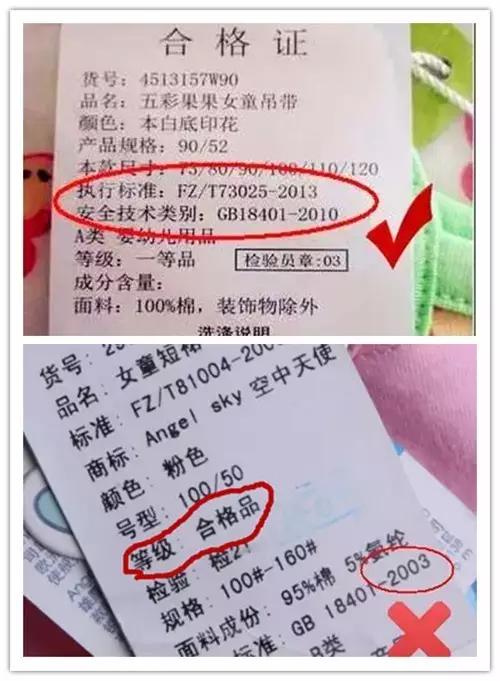 合格证
货号: 4513157W90
品名: 五彩果果女童吊带
颜色: 本白底印花
产品规格: 90/52
本款尺寸: 73/80/90/100/110/120
执行标准: FZ/T73025-2013
安全技术类别: GB18401-2010
A类 婴幼儿用品
等级: 一等品 检验员章:03
成分含量:
面料: 100%棉, 装饰物除外
洗涤说明
货号:
品名: 女童短裙
标准: FZ/T81004-200
商标: Angel sky 空中天使
颜色: 粉色
号型: 100/50
等级: 合格品
检验: 检21
规格: 100#-160#
面料成份: 95%棉 5%氨纶
标准: GB 18401-2003
B类